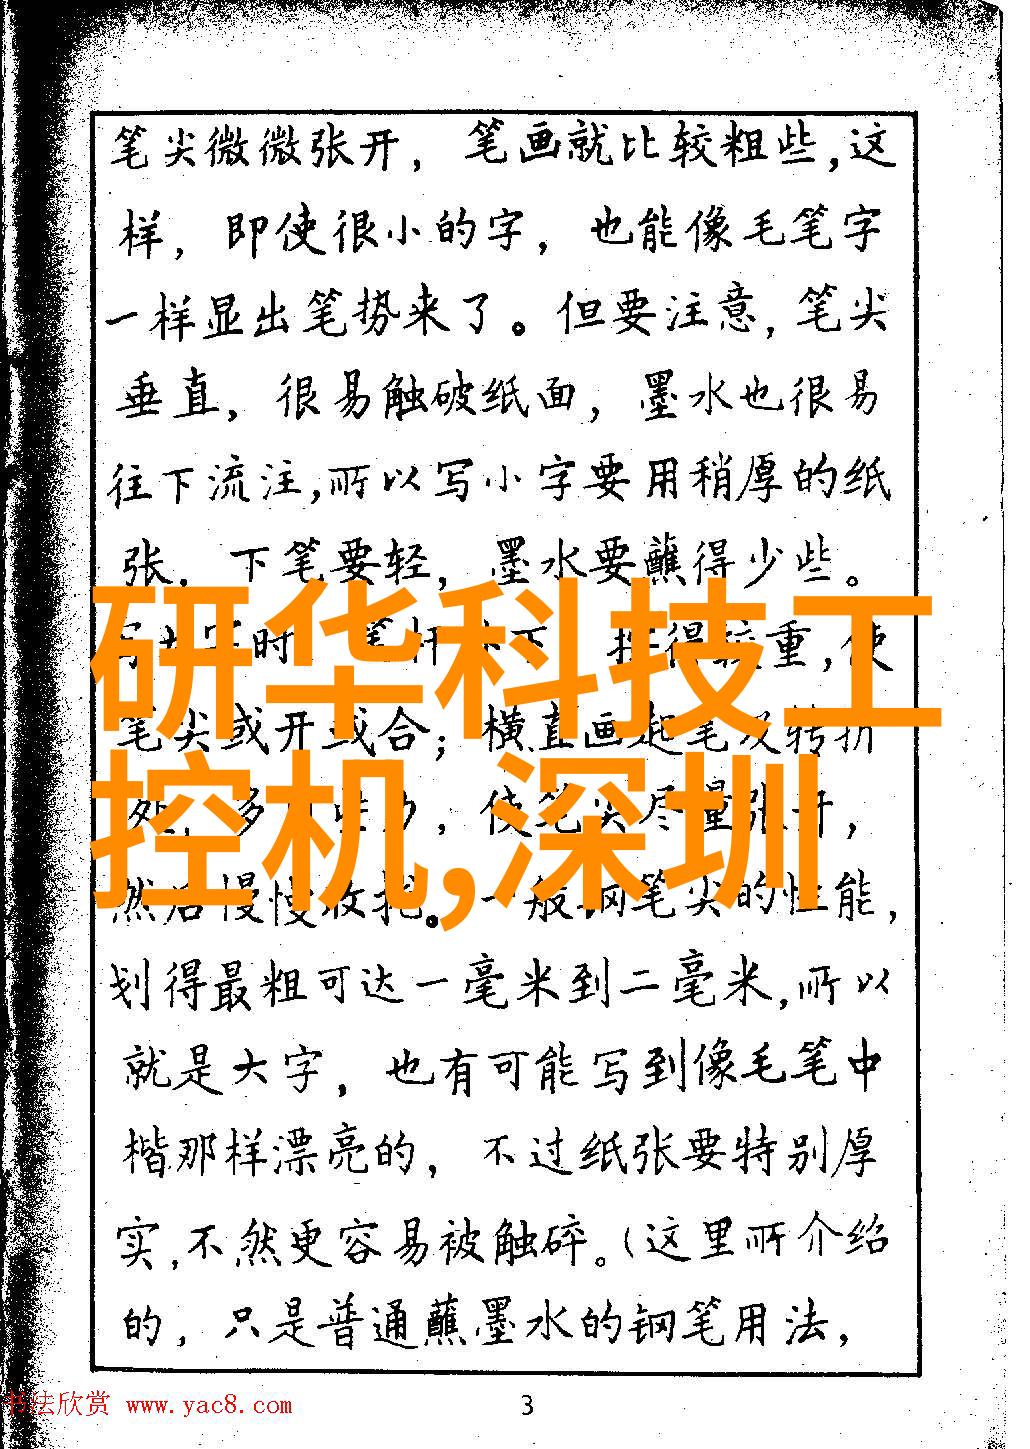 笔尖微微张开，笔画就比较粗些,这
样，即使很小的字，也能像毛笔字
一样显出笔势来了。但要注意,笔尖
垂直，很易触破纸面，墨水也很易
往下流注,所以写小字要用稍厚的纸
张．下笔要轻，墨水要蘸得少些。
时 重,使
笔尖或开或合；横直画起笔及转折
，使笔尖尽量张开，
然后慢慢收拢。一般钢笔尖的性能，
划得最粗可达一毫米到二毫米,所以
就是大字，也有可能写到像毛笔中
楷那样漂亮的，不过纸张要特别厚
实,不然更容易被触碎。(这里所介绍
的，只是普通蘸墨水的钢笔用法，
研华科技工
控机,深圳
书法欣赏 www.yac8.com
3